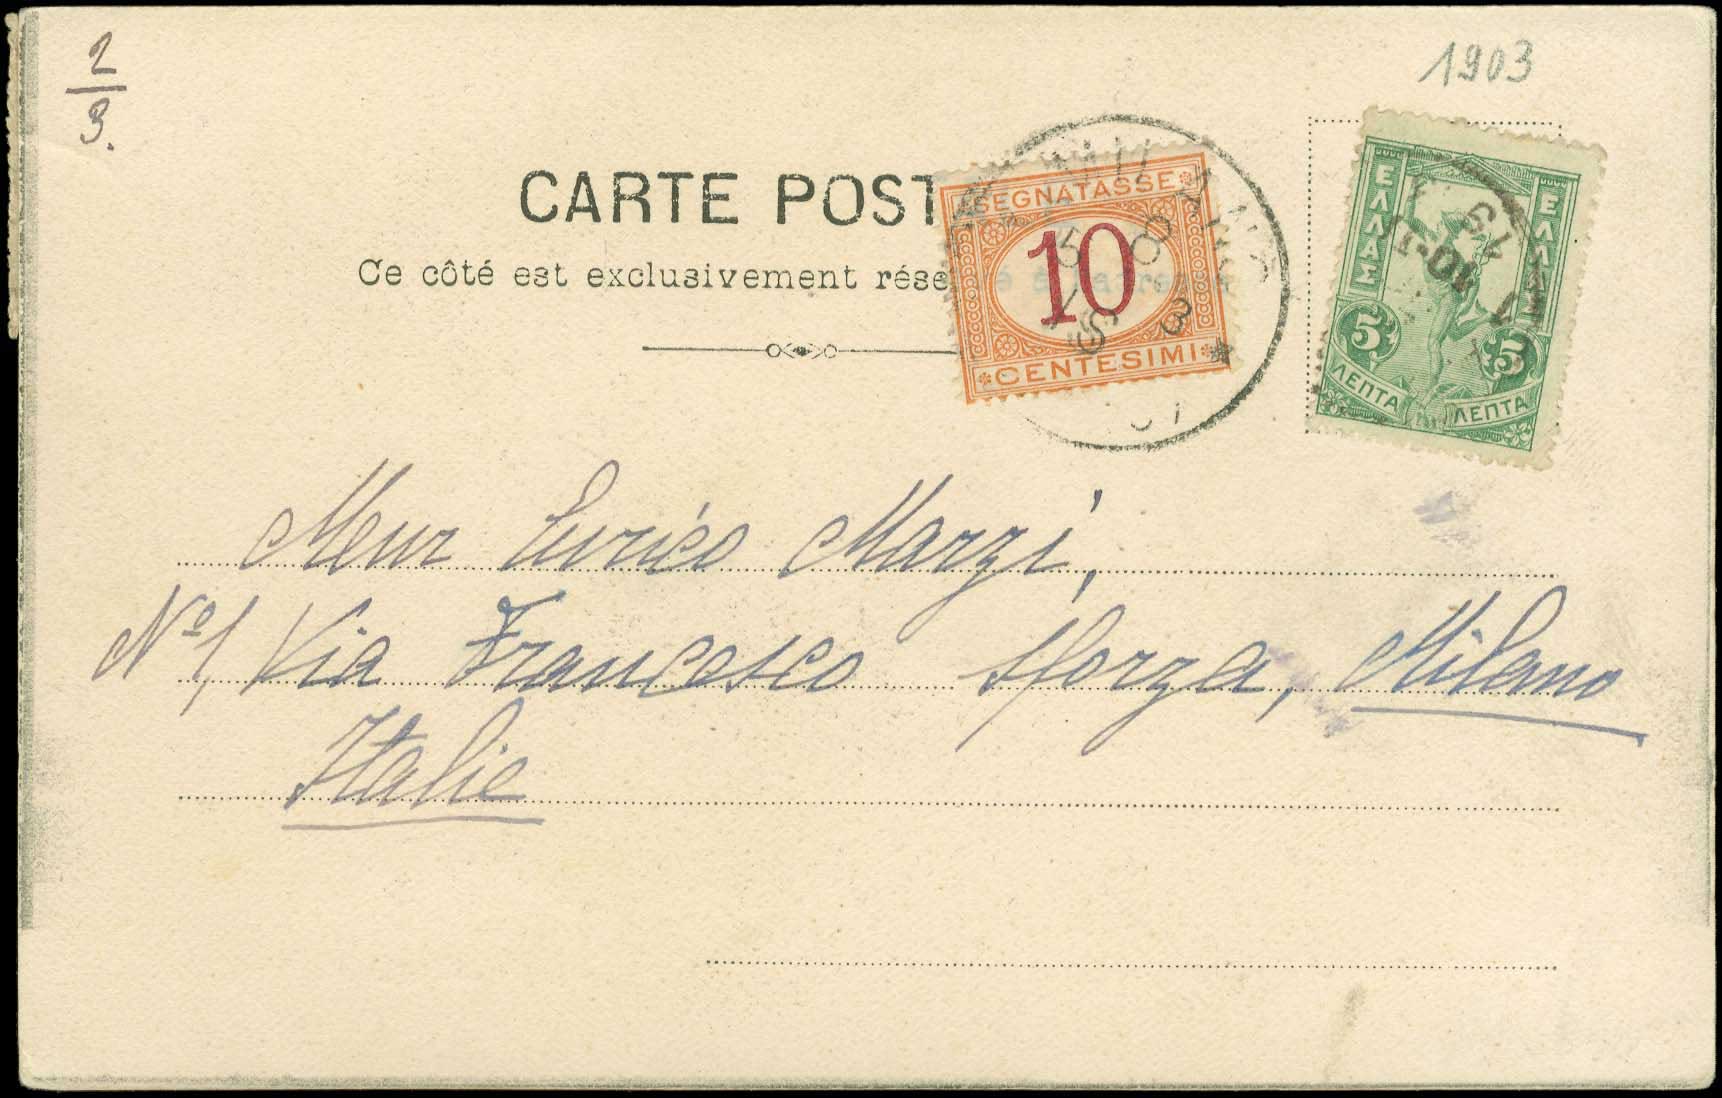 2
3.
1903
CARTE POST
Ce côté est exclusivement réservé à l'adresse
SEGNATASSE
10
CENTESIMI
ΕΛΛΑΣ
ΕΛΛΑΣ
5 5
ΛΕΠΤΑ ΛΕΠΤΑ
Meur Enrico Marzi,
Nº 1, Via Francesco Sforza, Milano
Italie